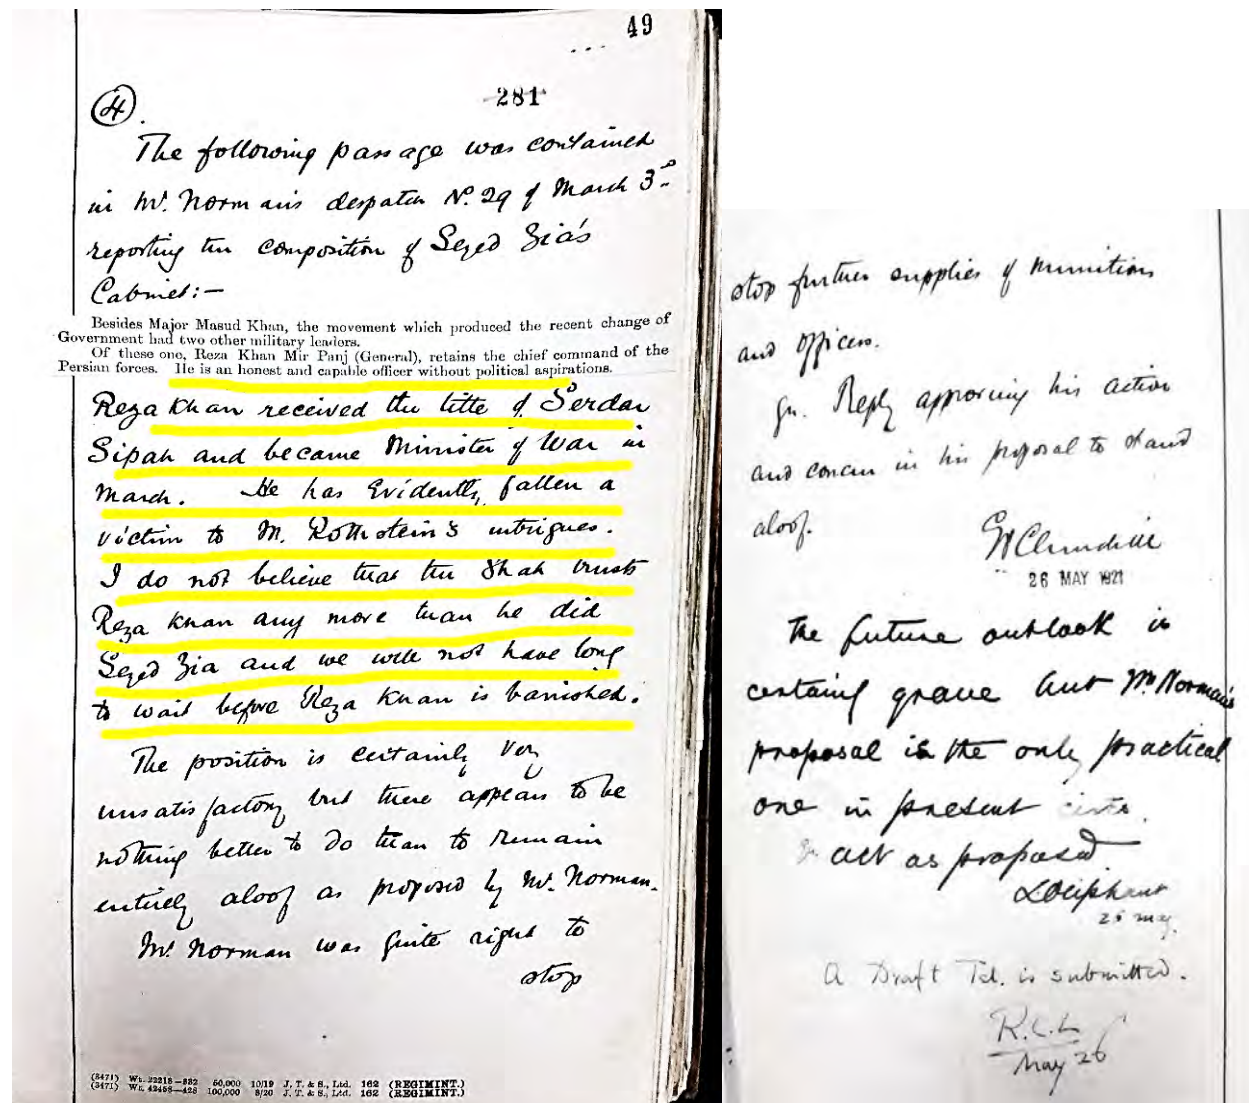 49
281
4.
The following passage was contained
in Mr. Norman's despatch No. 29 of March 3rd
reporting the composition of Seyed Zia's
Cabinet:—
Besides Major Masud Khan, the movement which produced the recent change of
Government had two other military leaders.
Of these one, Reza Khan Mir Panj (General), retains the chief command of the
Persian forces. He is an honest and capable officer without political aspirations.
Reza Khan received the title of Serdar
Sipah and became Minister of War in
March. He has evidently fallen a
victim to M. Rothstein's intrigues.
I do not believe that the Shah trusts
Reza Khan any more than he did
Seyed Zia and we will not have long
to wait before Reza Khan is banished.
The position is certainly very
unsatisfactory but there appears to be
nothing better to do than to remain
entirely aloof as proposed by Mr. Norman.
Mr. Norman was quite right to
stop
(3471) Wt. 22218—882 50,000 10/19 J. T. & S., Ltd. 162 (REGIMINT.)
(3471) Wt. 42458—428 100,000 8/20 J. T. & S., Ltd. 162 (REGIMINT.)
stop further supplies of munitions
and officers.
Qu. Reply approving his action
and concur in his proposal to stand
aloof.
GPChurchill
26 MAY 1921
The future outlook is
certainly grave but Mr. Norman's
proposal is the only practical
one in present circs.
act as proposed.
LOliphant
26 May.
A Draft Tel. is submitted.
R.C.L.
May 26